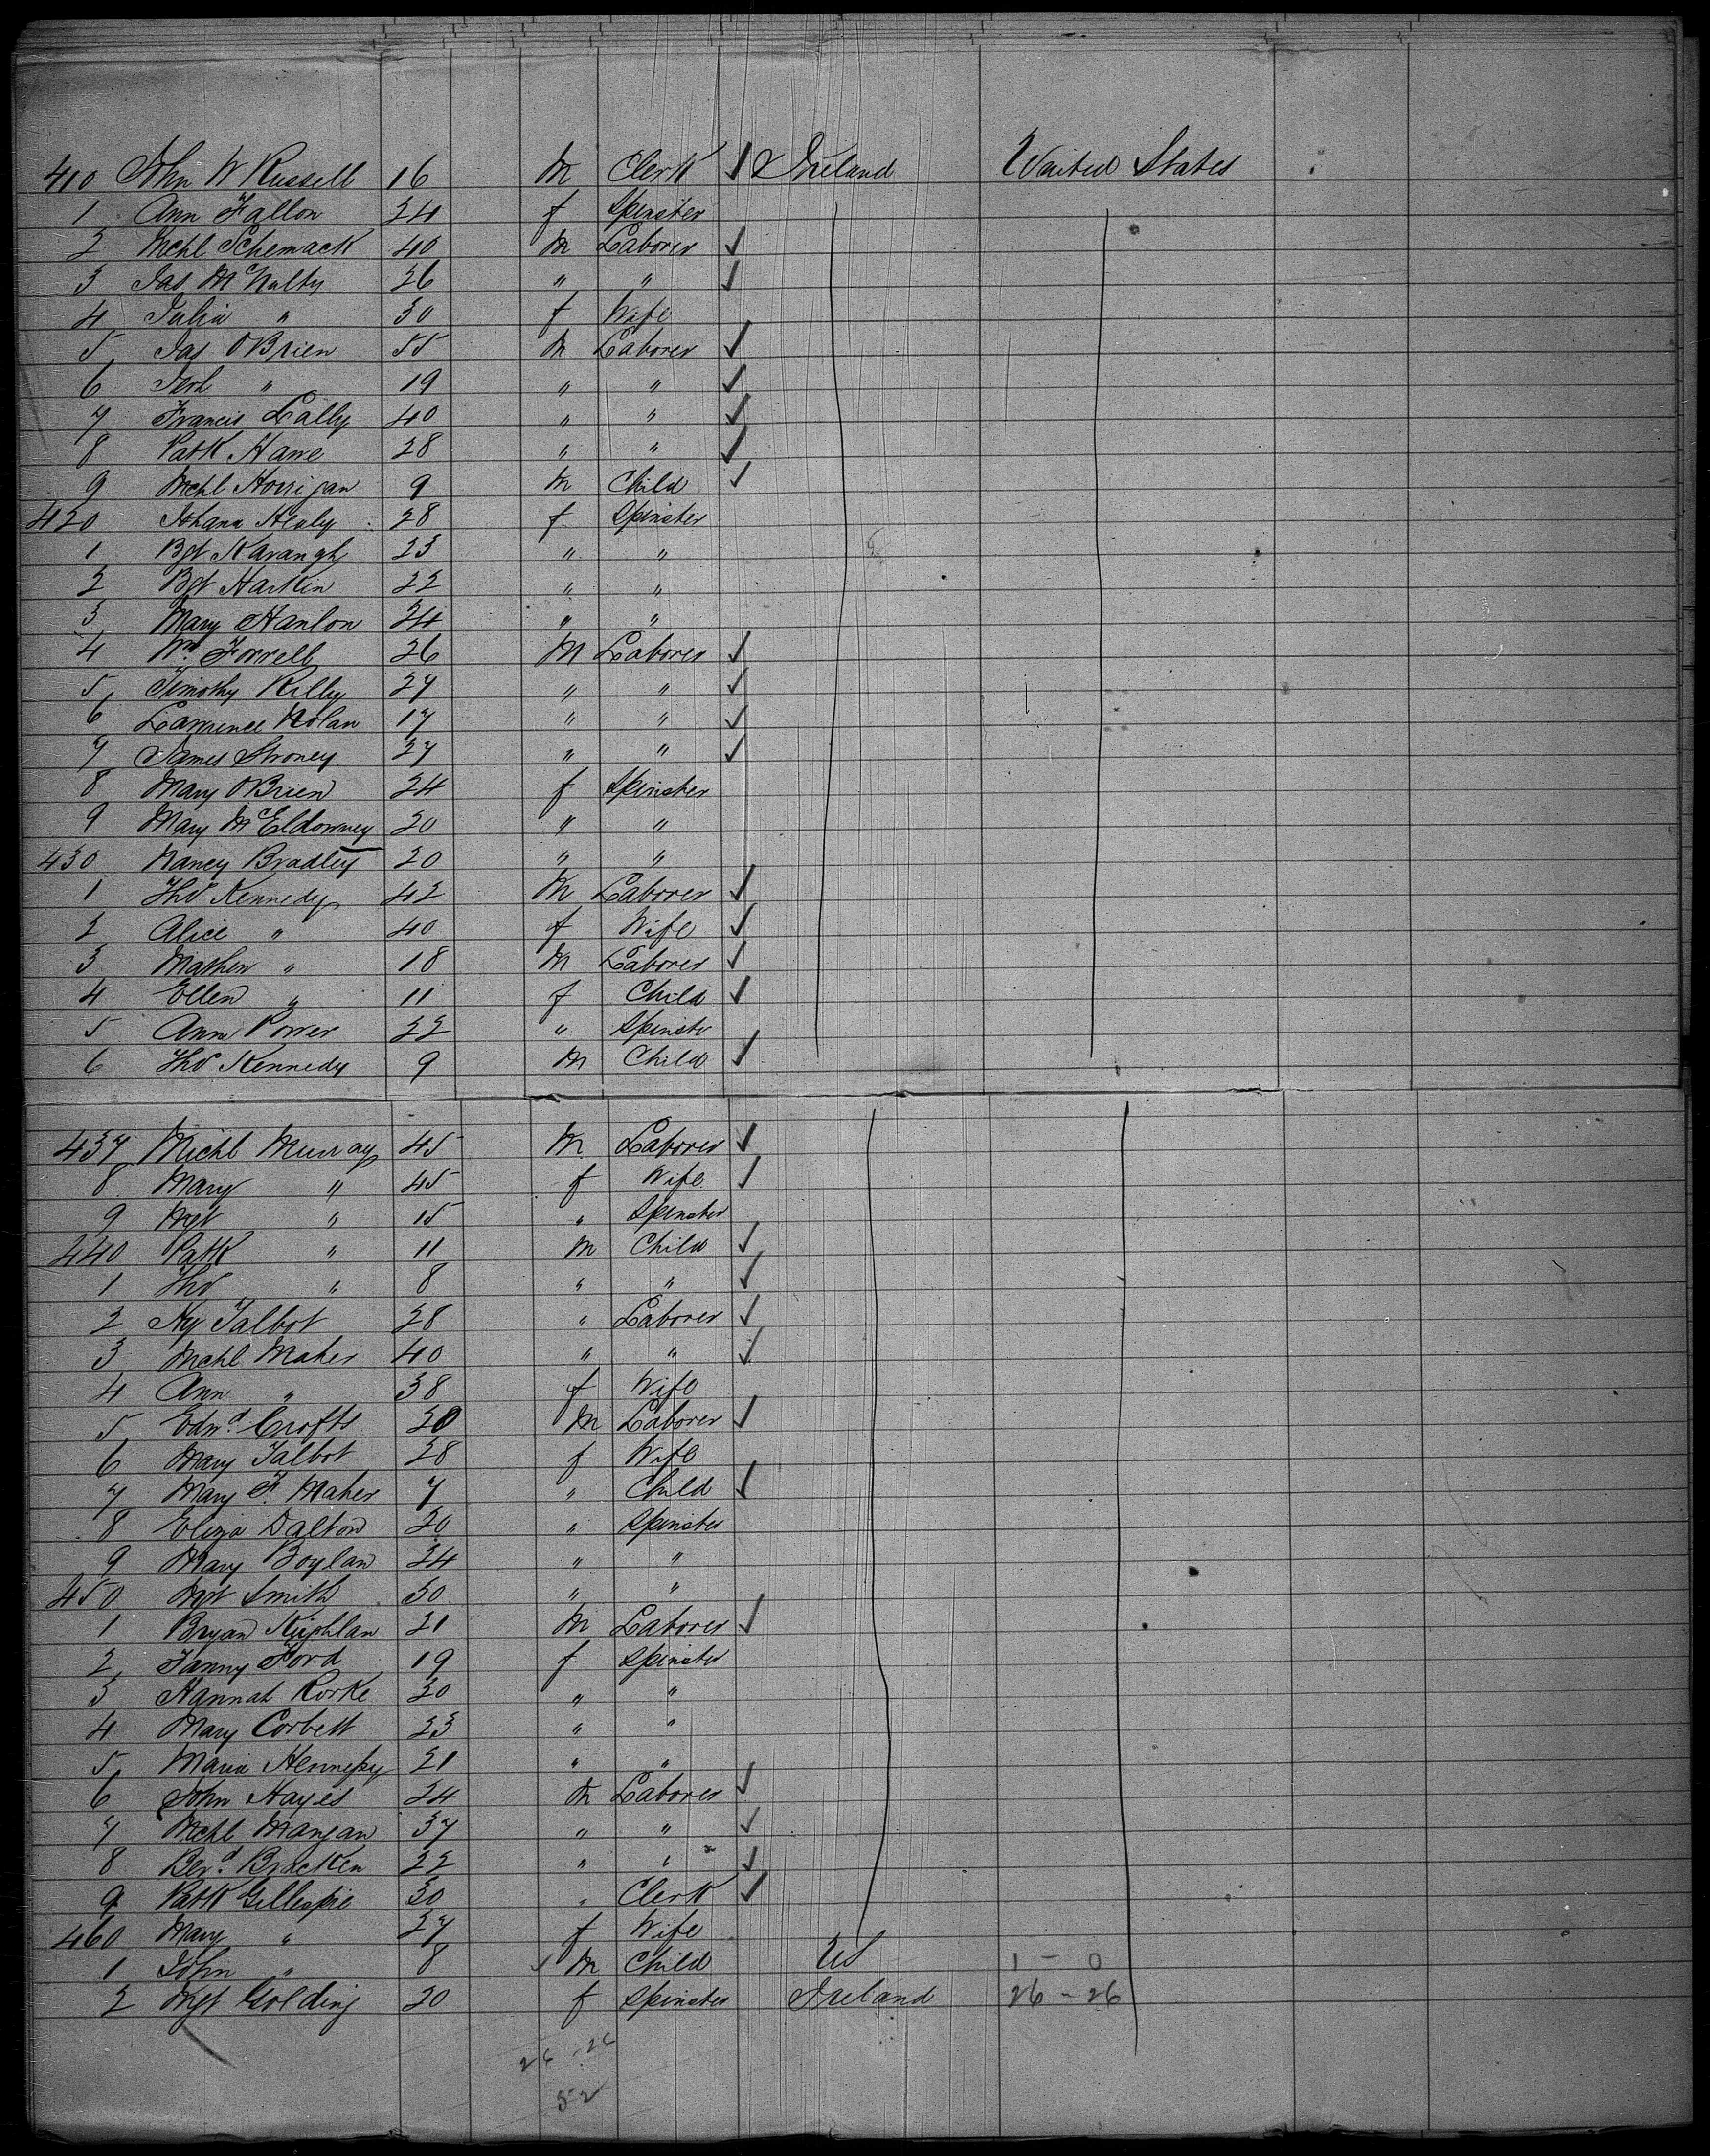 410 John W Russell 16 M Clerk ✓ Ireland United States
1 Ann Fallon 24 f Spinster
2 Mchl Schemack 40 M Laborer ✓
3 Jas McNulty 26 " " ✓
4 Julia " 30 f Wife
5 Jas OBrien 55 M Laborer ✓
6 " 19 " " ✓
7 Francis Lally 40 " " ✓
8 Patk Hawe 28 " " ✓
9 Mchl Horrigan 9 M Child ✓
420 Johana Healy 28 f Spinster
1 Bgt Kavangh 23 " "
2 Bgt Harkin 22 " "
3 Mary Hanlon 24 " "
4 Wm Forrell 26 M Laborer ✓
5 Timothy Killy 27 " " ✓
6 Lawrence Nolan 17 " " ✓
7 James Shroney 27 " " ✓
8 Mary OBrien 24 f Spinster
9 Mary McEldowney 20 " "
430 Nancy Bradley 20 " "
1 Thos Kennedy 42 M Laborer ✓
2 Alice " 40 f Wife ✓
3 Mathew " 18 M Laborer ✓
4 Ellen " 11 f Child ✓
5 Ann Power 22 " Spinster
6 Thos Kennedy 9 M Child ✓
437 Michl Murray 45 M Laborer ✓
8 Mary " 45 f Wife ✓
9 Mgt " 15 " Spinster
440 Patk " 11 M Child ✓
1 Thos " 8 " " ✓
2 Hy Talbot 28 " Laborer ✓
3 Mchl Maher 40 " " ✓
4 Ann " 38 f Wife
5 Edwd Crofts 20 M Laborer ✓
6 Mary Talbot 28 f Wife
7 Mary F. Maher 7 " Child ✓
8 Eliza Dalton 20 " Spinster
9 Mary Boylan 24 " "
450 Mgt Smith 50 " "
1 Bryan Keighlan 21 M Laborer ✓
2 Fanny Ford 19 f Spinster
3 Hannah Rorke 20 " "
4 Mary Corbett 23 " "
5 Maria Hennessy 21 " "
6 John Hayes 24 M Laborer ✓
7 Mchl Mangan 37 " " ✓
8 Berd Bracken 22 " " ✓
9 Patk Gillespie 30 " Clerk ✓
460 Mary " 27 f Wife
1 John " 8 ✓ M Child US 1 - 0
2 Mgt Golding 20 f Spinster Ireland 26 - 26
26 - 26
52